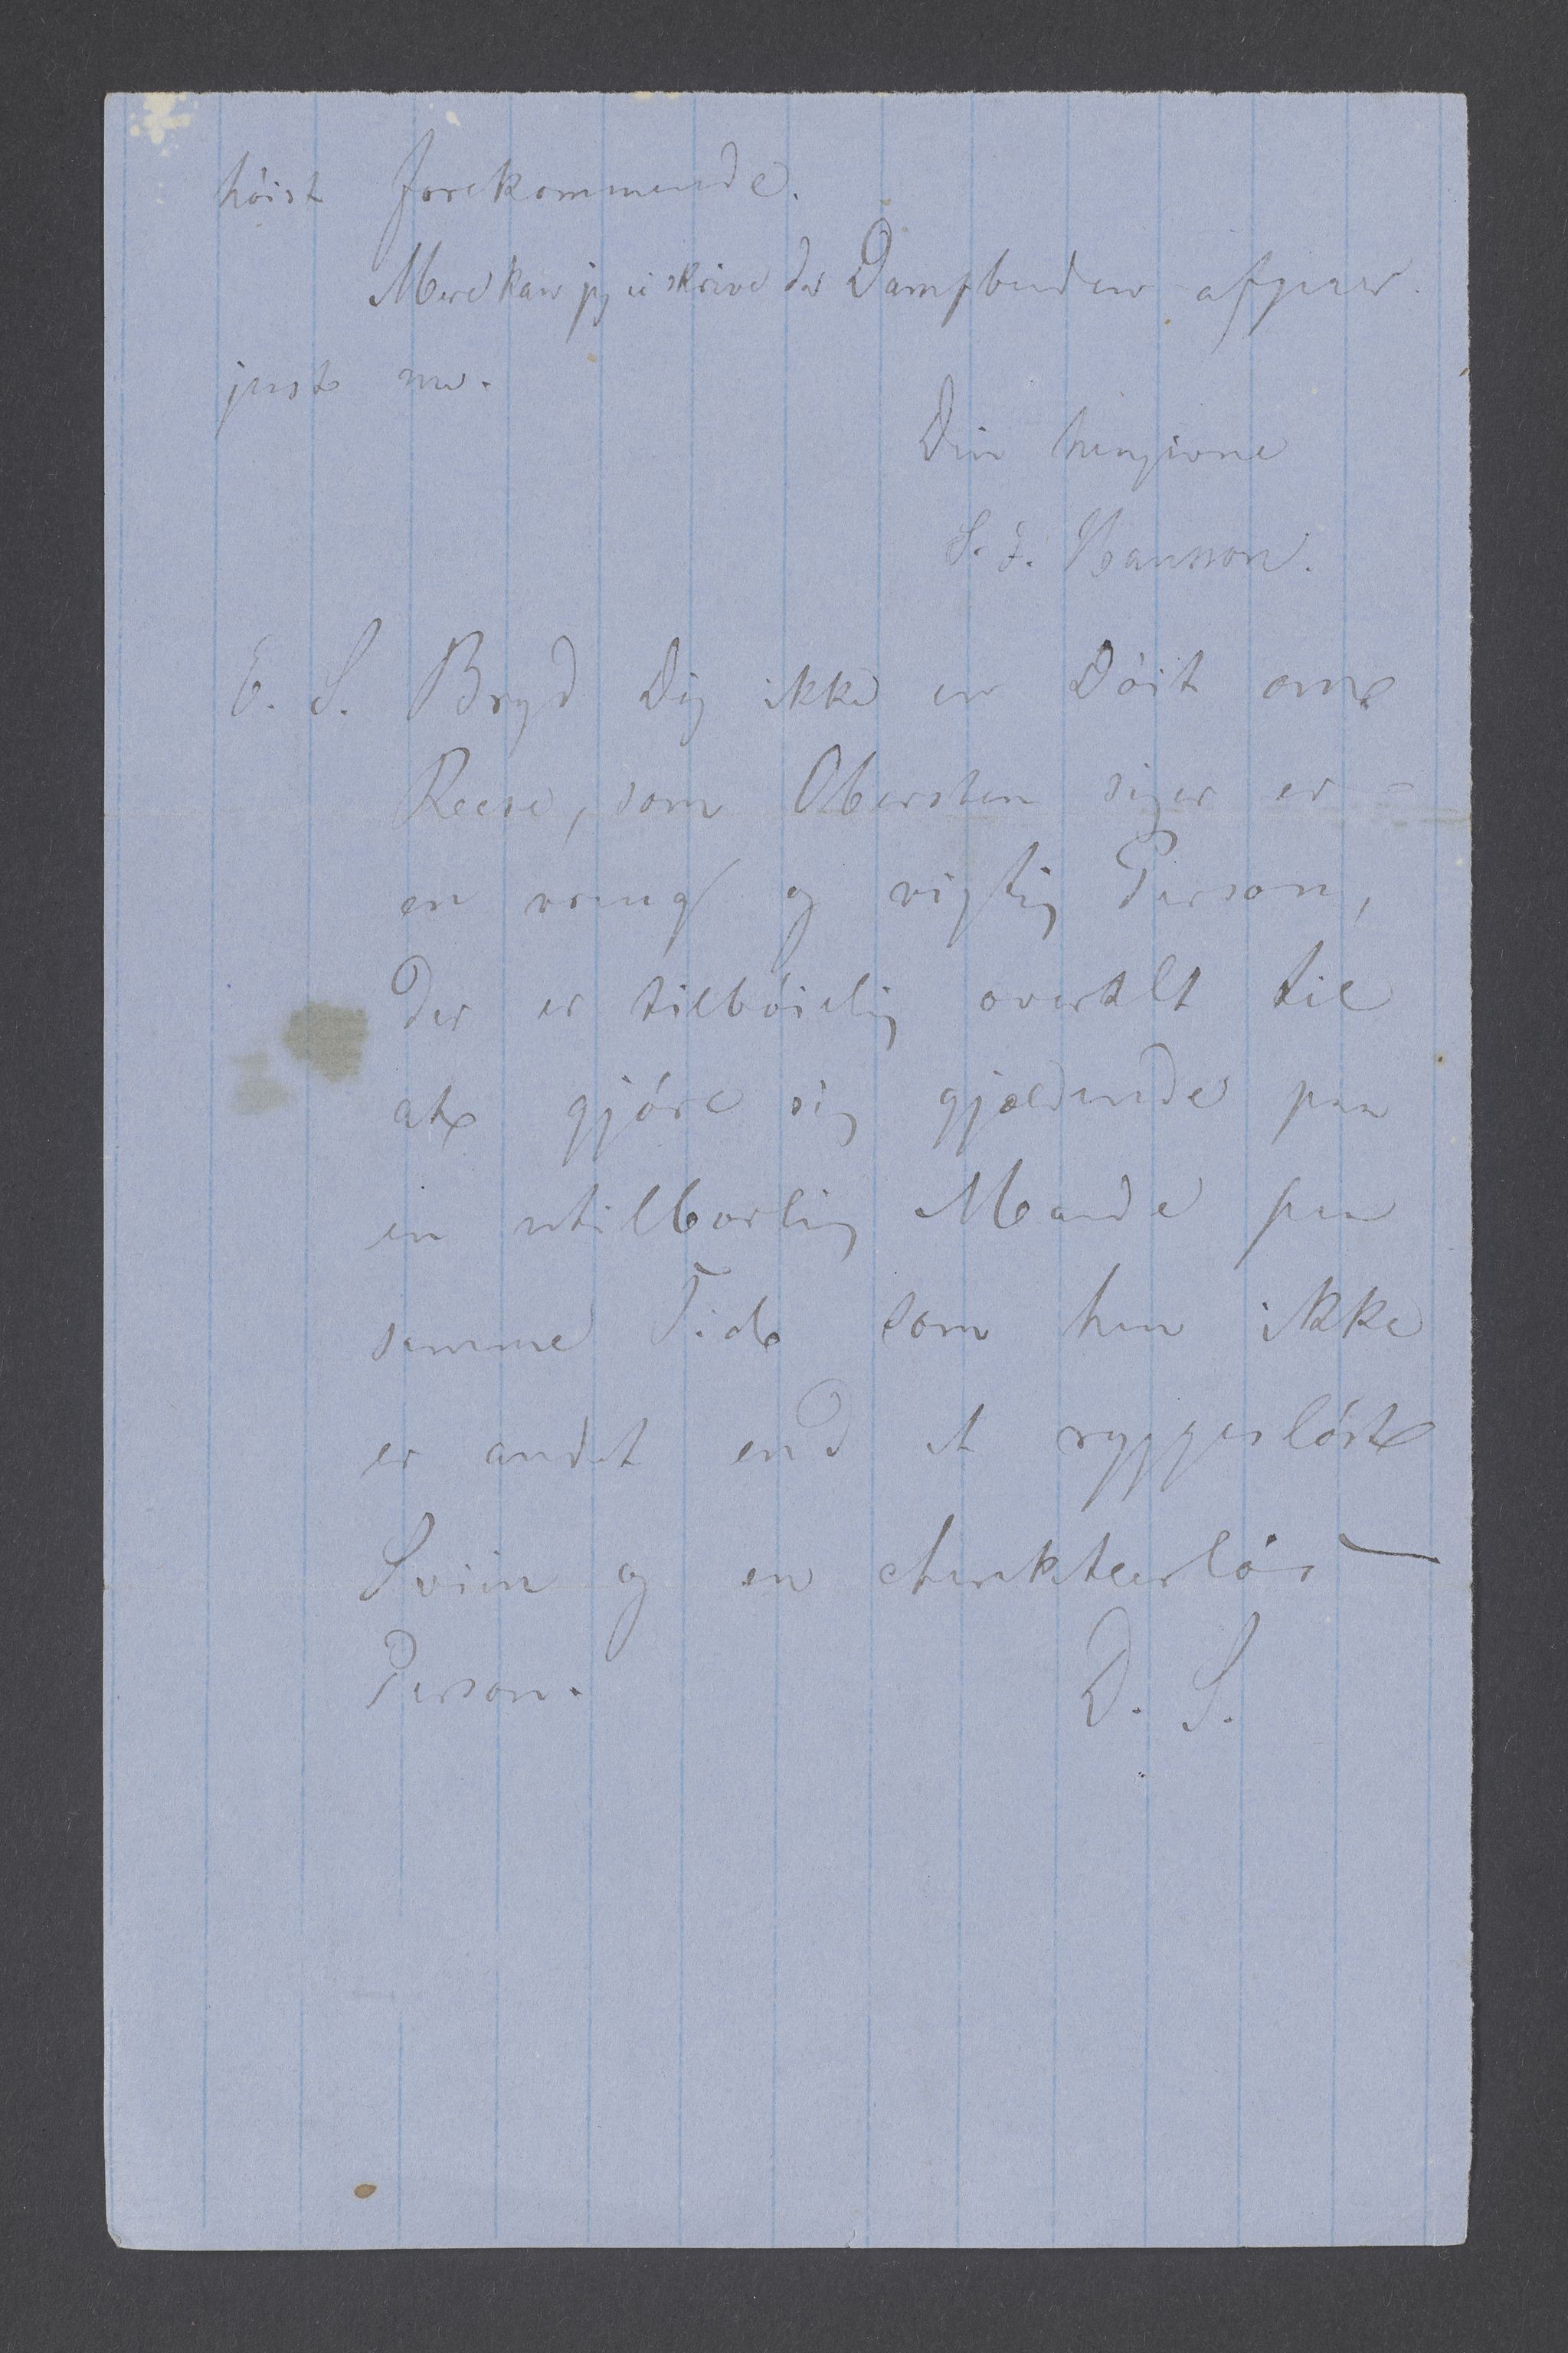 höist forekommende.
Mere kan jeg ei skrive da Dampbaaden afgaar
just nu.
Din hengivne
S. J. Hansson.
E. S. Bryd Dig ikke en Döit om
Reese, som Obersten siger er
en vrang og vigtig Person,
der er tilböielig overalt til
at gjöre sig gjældende paa
en utilbørlig Maade paa
samme Tid som han ikke
er andet end et ryggeslöst
Sviin og en charakteerlös
Person. D. S.